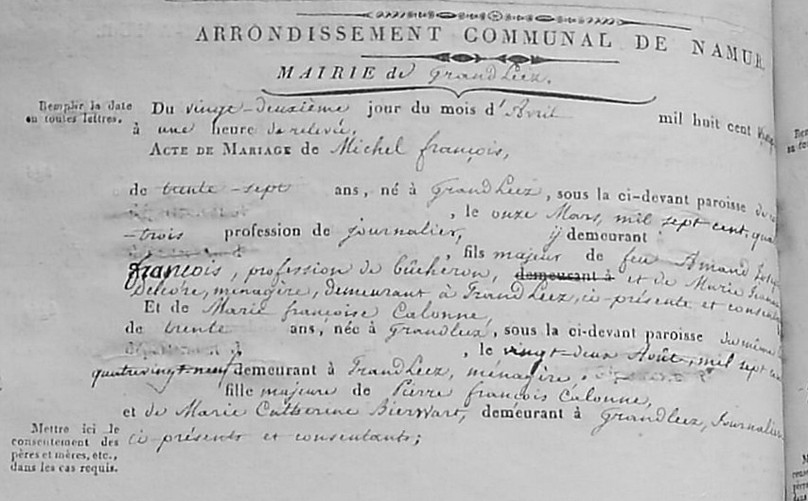 ARRONDISSEMENT COMMUNAL DE NAMUR
MAIRIE de Grand Leez.
Remplir la date
en toutes lettres.
Du vingt-deuxième jour du mois d'Avril mil huit cent
à une heure de relevée,
ACTE DE MARIAGE de Michel françois,
de trente-sept ans, né à Grand Leez, sous la ci-devant paroisse
, le onze Mars, mil sept cent
-trois profession de journalier, y demeurant
, fils majeur de feu Amand
françois, profession de bûcheron, demeurant à et de Marie
Delcôre, ménagère, demeurant à Grand Leez, ci-présente et
Et de Marie françoise Calonne,
de trente ans, née à Grandleez, sous la ci-devant paroisse du même
, le vingt-deux Août, mil sept
quatrevingt-neuf demeurant à Grand Leez, ménagère,
fille majeure de Pierre françois Calonne,
et de Marie Catherine Bierwart, demeurant à Grandleez, Journalier
Mettre ici le
consentement des
pères et mères, etc.,
dans les cas requis.
ci-présents et consentants;